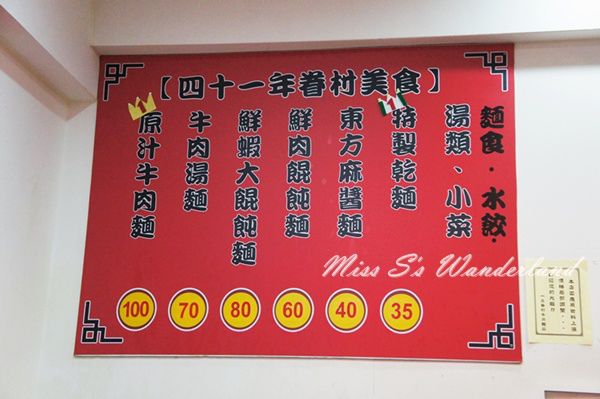 【四十一年眷村美食】
麵食．水餃．
湯類、小菜
1
特製乾麵
35
東方麻醬麵
40
鮮肉餛飩麵
60
鮮蝦大餛飩麵
80
牛肉湯麵
70
1
原汁牛肉麵
100
Miss S's Wanderland